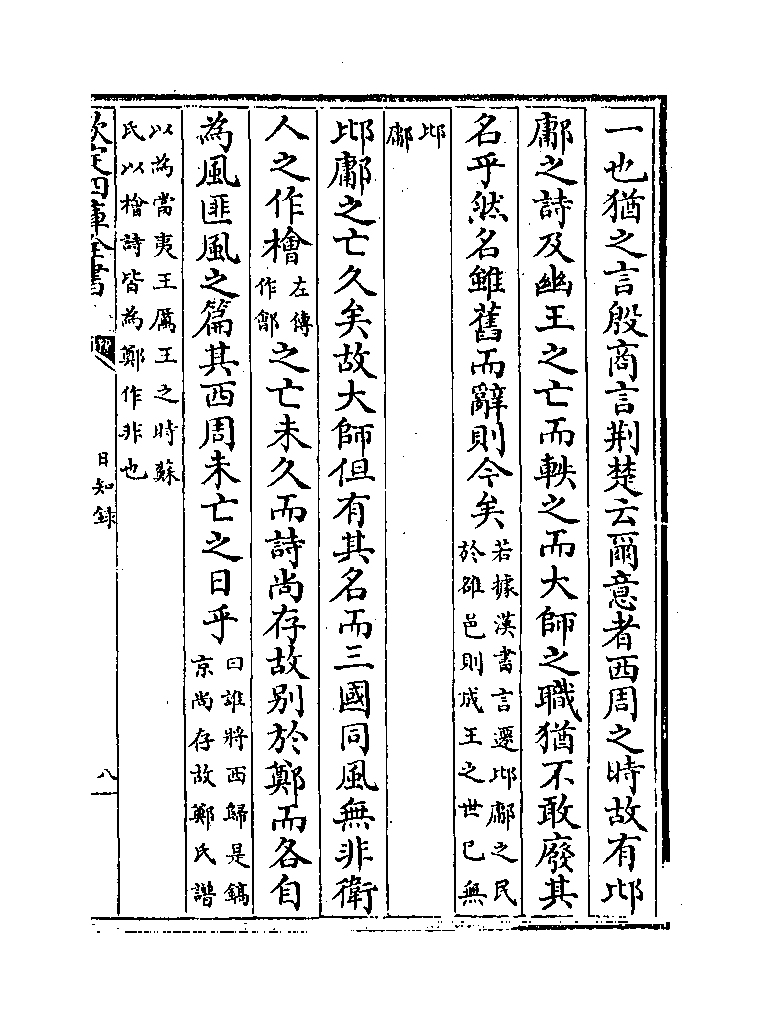 一也猶之言殷商言荆楚云爾意者西周之時故有邶
鄘之詩及幽王之亡而軼之而大師之職猶不敢廢其
名乎然名雖舊而辭則今矣若據漢書言遷邶鄘之民
於雒邑則成王之世已無
邶
鄘
邶鄘之亡久矣故大師但有其名而三國同風無非衛
人之作檜左傳
作鄶之亡未久而詩尚存故别於鄭而各自
為風匪風之篇其西周未亡之日乎曰誰將西歸是鎬
京尚存故鄭氏譜
以為當夷王厲王之時蘇
氏以檜詩皆為鄭作非也
欽定四庫全書
日知録
八